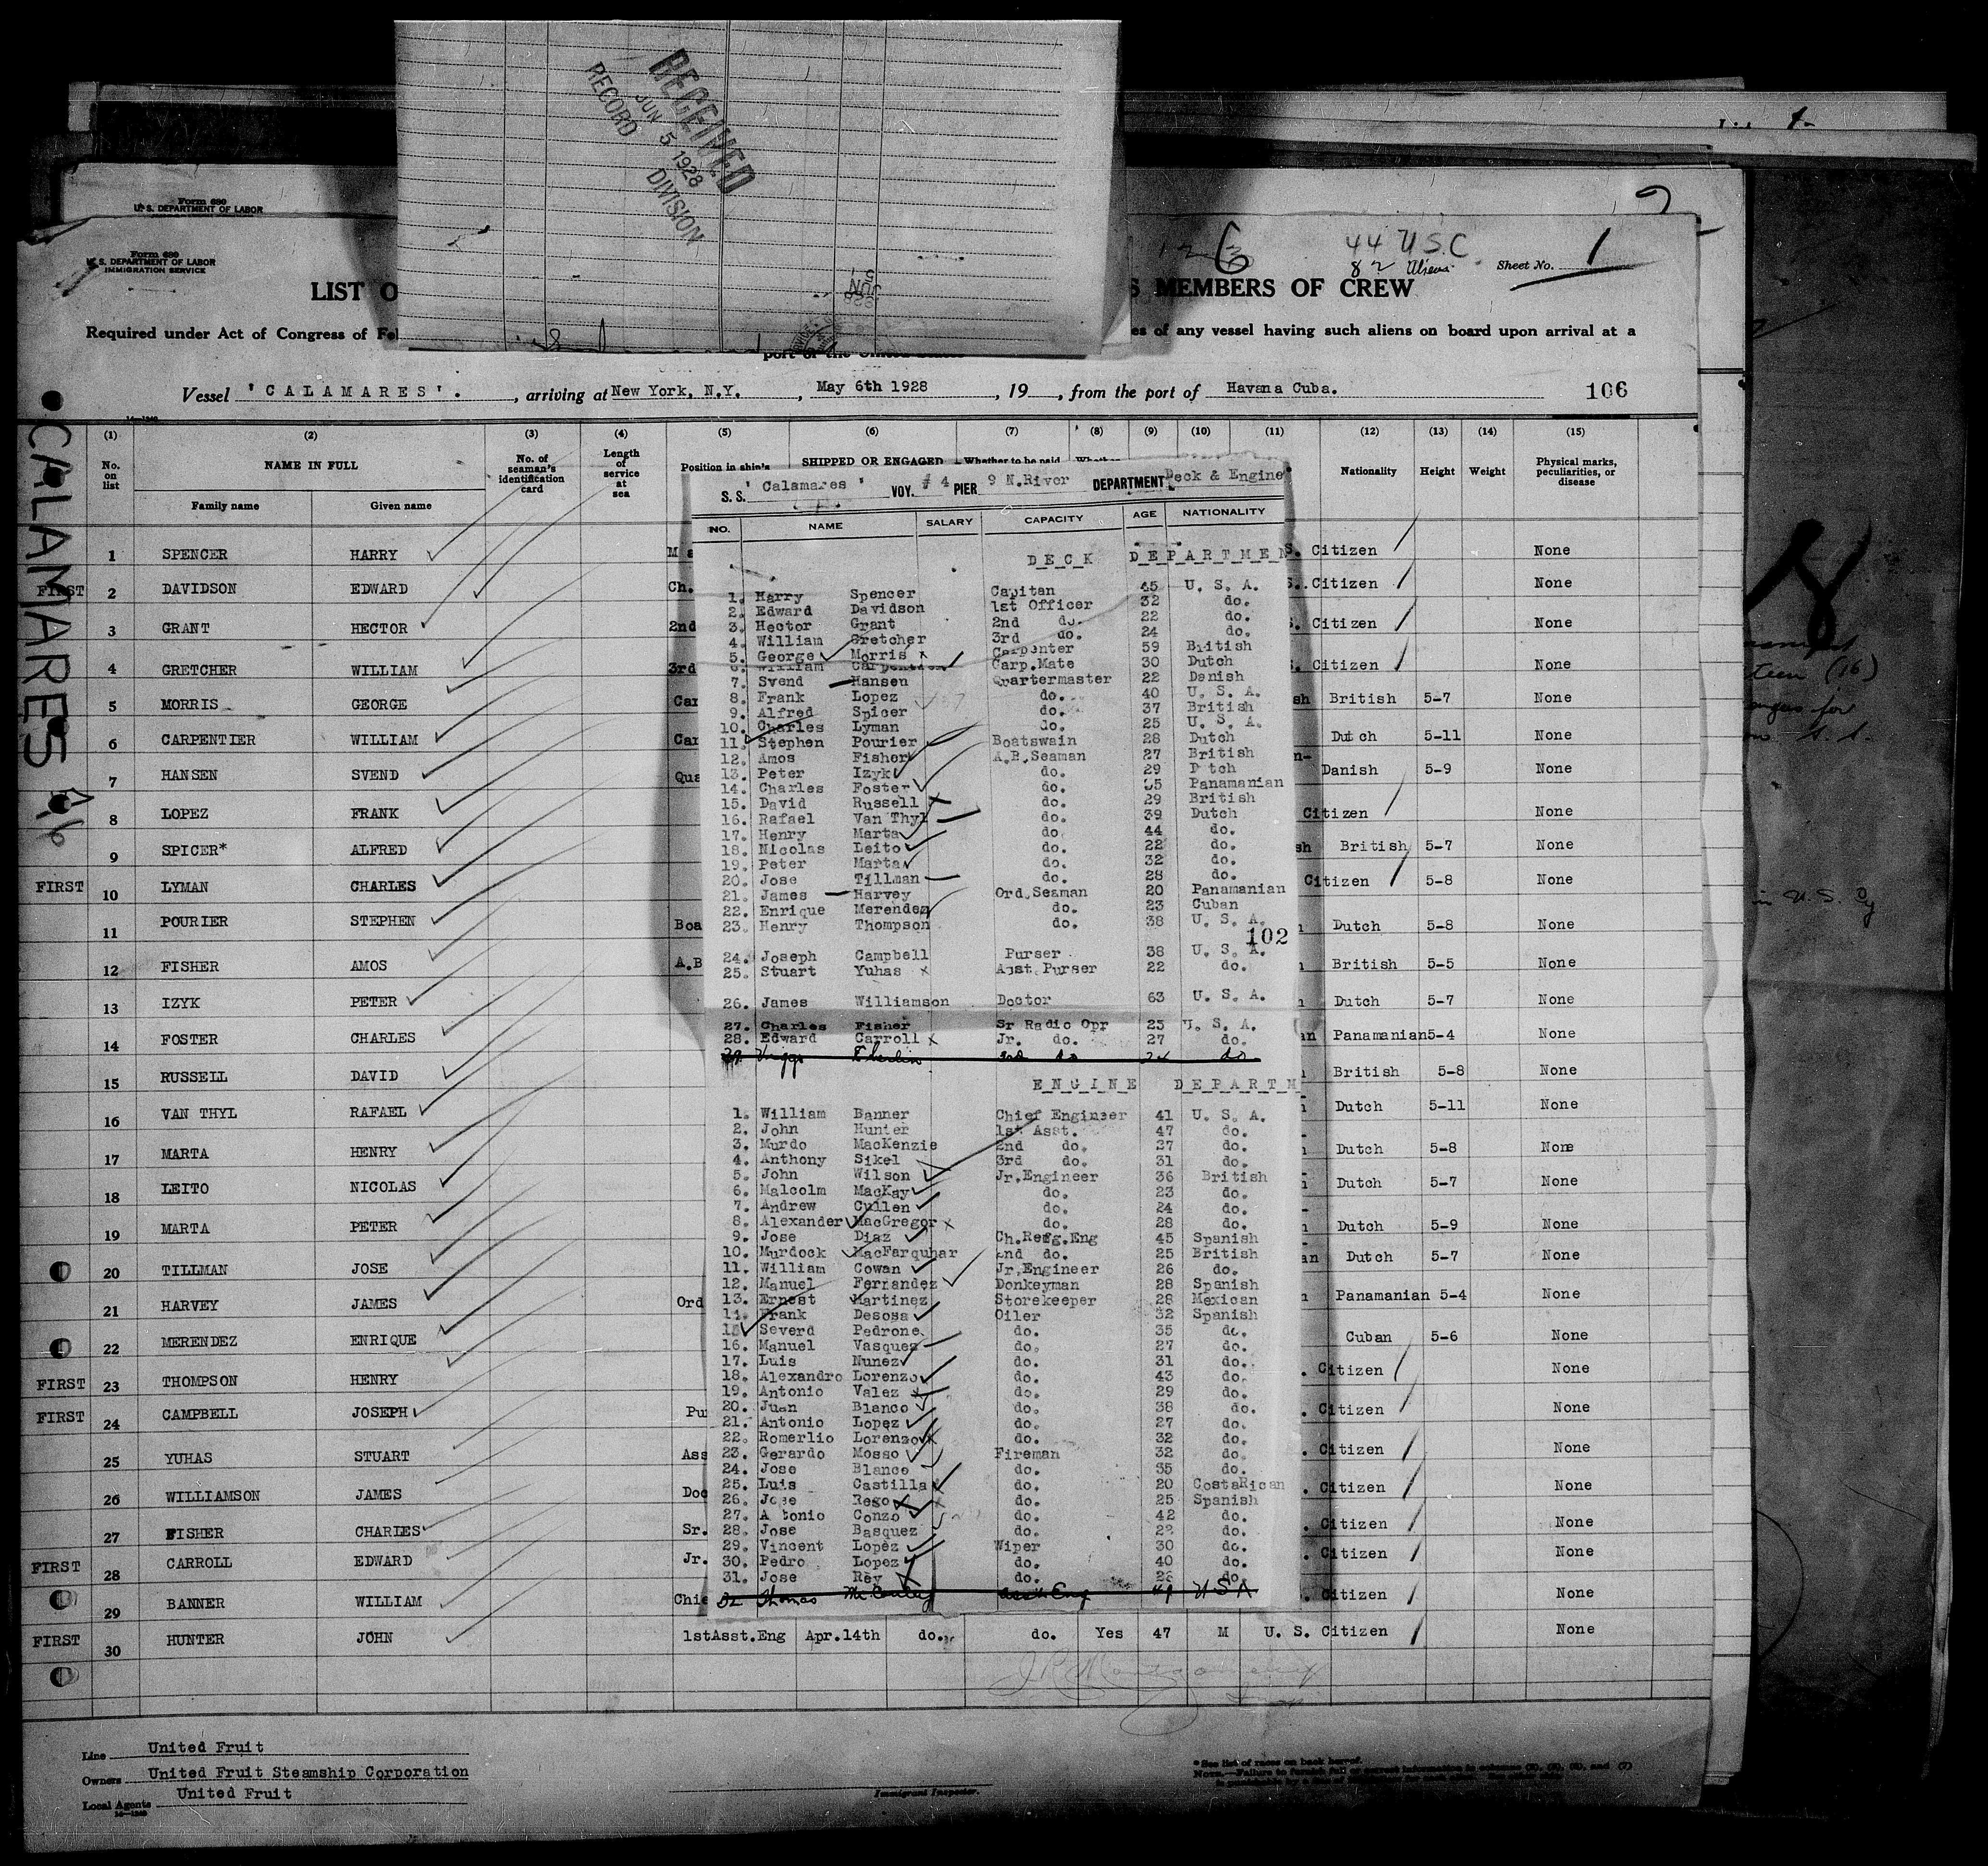 RECEIVED
JUN 5 1928
RECORD DIVISION
Form 680
U. S. DEPARTMENT OF LABOR
Form 680
U. S. DEPARTMENT OF LABOR
IMMIGRATION SERVICE
126
44 U.S.C.
82 Aliens
Sheet No. 1
LIST O
S MEMBERS OF CREW
Required under Act of Congress of Fe
es of any vessel having such aliens on board upon arrival at a
port of the United States
Vessel 'CALAMARES'. , arriving at New York, N.Y. , May 6th 1928 , 19 , from the port of Havana Cuba. 106
CALAMARES
(1) (2) (3) (4) (5) (6) (7) (8) (9) (10) (11) (12) (13) (14) (15)
No. on list NAME IN FULL No. of seaman's identification card Length of service at sea Position in ship's SHIPPED OR ENGAGED Whether to be paid Whether Nationality Height Weight Physical marks, peculiarities, or disease
Family name Given name
1 SPENCER HARRY S. Citizen None
FIRST 2 DAVIDSON EDWARD Ch. S. Citizen None
3 GRANT HECTOR 2nd S. Citizen None
4 GRETCHER WILLIAM 3rd S. Citizen None
5 MORRIS GEORGE Car sh British 5-7 None
6 CARPENTIER WILLIAM Car Dutch 5-11 None
7 HANSEN SVEND Qua Danish 5-9 None
8 LOPEZ FRANK Citizen None
9 SPICER* ALFRED sh British 5-7 None
FIRST 10 LYMAN CHARLES Citizen 5-8 None
11 POURIER STEPHEN Boa Dutch 5-8 None
12 FISHER AMOS A.B British 5-5 None
13 IZYK PETER Dutch 5-7 None
14 FOSTER CHARLES an Panamanian 5-4 None
15 RUSSELL DAVID British 5-8 None
16 VAN THYL RAFAEL Dutch 5-11 None
17 MARTA HENRY Dutch 5-8 None
18 LEITO NICOLAS Dutch 5-7 None
19 MARTA PETER Dutch 5-9 None
20 TILLMAN JOSE an Dutch 5-7 None
21 HARVEY JAMES Ord Panamanian 5-4 None
22 MERENDEZ ENRIQUE Cuban 5-6 None
FIRST 23 THOMPSON HENRY . Citizen None
FIRST 24 CAMPBELL JOSEPH Pu . Citizen None
25 YUHAS STUART Ass . Citizen None
26 WILLIAMSON JAMES Doc . Citizen None
27 FISHER CHARLES Sr. . Citizen None
FIRST 28 CARROLL EDWARD Jr. . Citizen None
29 BANNER WILLIAM Chie . Citizen None
FIRST 30 HUNTER JOHN 1stAsst.Eng Apr.14th do. do. Yes 47 M U. S. Citizen None
S. S. 'Calamares' VOY. # 4 PIER 9 N.River DEPARTMENT Deck & Engine
NO. NAME SALARY CAPACITY AGE NATIONALITY
DECK DEPARTMEN
1. Harry Spencer Capitan 45 U. S. A.
2. Edward Davidson 1st Officer 32 do.
3. Hector Grant 2nd do. 22 do.
4. William Gretcher 3rd do. 24 do.
5. George Morris Carpenter 59 British
6. William Carpentier Carp.Mate 30 Dutch
7. Svend Hansen Quartermaster 22 Danish
8. Frank Lopez do. 40 U. S. A.
9. Alfred Spicer do. 37 British
10. Charles Lyman do. 25 U. S. A.
11. Stephen Pourier Boatswain 28 Dutch
12. Amos Fisher A.B.Seaman 27 British
13. Peter Izyk do. 29 D tch
14. Charles Foster do. 35 Panamanian
15. David Russell do. 29 British
16. Rafael Van Thyl do. 39 Dutch
17. Henry Marta do. 44 do.
18. Nicolas Leito do. 22 do.
19. Peter Marta do. 32 do.
20. Jose Tillman do. 28 do.
21. James Harvey Ord.Seaman 20 Panamanian
22. Enrique Merendez do. 23 Cuban
23. Henry Thompson do. 38 U. S. A.
102
24. Joseph Campbell Purser 38 U. S. A.
25. Stuart Yuhas Asst.Purser 22 do.
26. James Williamson Doctor 63 U. S. A.
27. Charles Fisher Sr Radio Opr 25 U. S. A.
28. Edward Carroll Jr. do. 27 do.
29. 3rd do 24 do
ENGINE DEPARTM
1. William Banner Chief Engineer 41 U. S. A.
2. John Hunter 1st Asst. 47 do.
3. Murdo MacKenzie 2nd do. 27 do.
4. Anthony Sikel 3rd do. 31 do.
5. John Wilson Jr.Engineer 36 British
6. Malcolm MacKay do. 23 do.
7. Andrew Cullen do. 24 do.
8. Alexander MacGregor do. 28 do.
9. Jose Diaz Ch.Refg.Eng 45 Spanish
10. Murdock MacFarquhar 2nd do. 25 British
11. William Cowan Jr.Engineer 26 do.
12. Manuel Fernandez Donkeyman 28 Spanish
13. Ernest Martinez Storekeeper 28 Mexican
14. Frank Desosa Oiler 32 Spanish
15. Severd Pedrone do. 35 do.
16. Manuel Vasquez do. 27 do.
17. Luis Nunez do. 31 do.
18. Alexandro Lorenzo do. 43 do.
19. Antonio Valez do. 29 do.
20. Juan Blanco do. 38 do.
21. Antonio Lopez do. 27 do.
22. Romerlio Lorenzo do. 32 do.
23. Gerardo Mosso Fireman 32 do.
24. Jose Blanco do. 35 do.
25. Luis Castilla do. 20 CostaRican
26. Jose Rego do. 25 Spanish
27. A tonio Conzo do. 42 do.
28. Jose Basquez do. 22 do.
29. Vincent Lopez Wiper 30 do.
30. Pedro Lopez do. 40 do.
31. Jose Rey do. 26 do.
32 Thomas McCauley Eng 49 U S A
Line United Fruit
Owners United Fruit Steamship Corporation
Local Agents United Fruit
Immigrant Inspector.
* See list of races on back hereof.